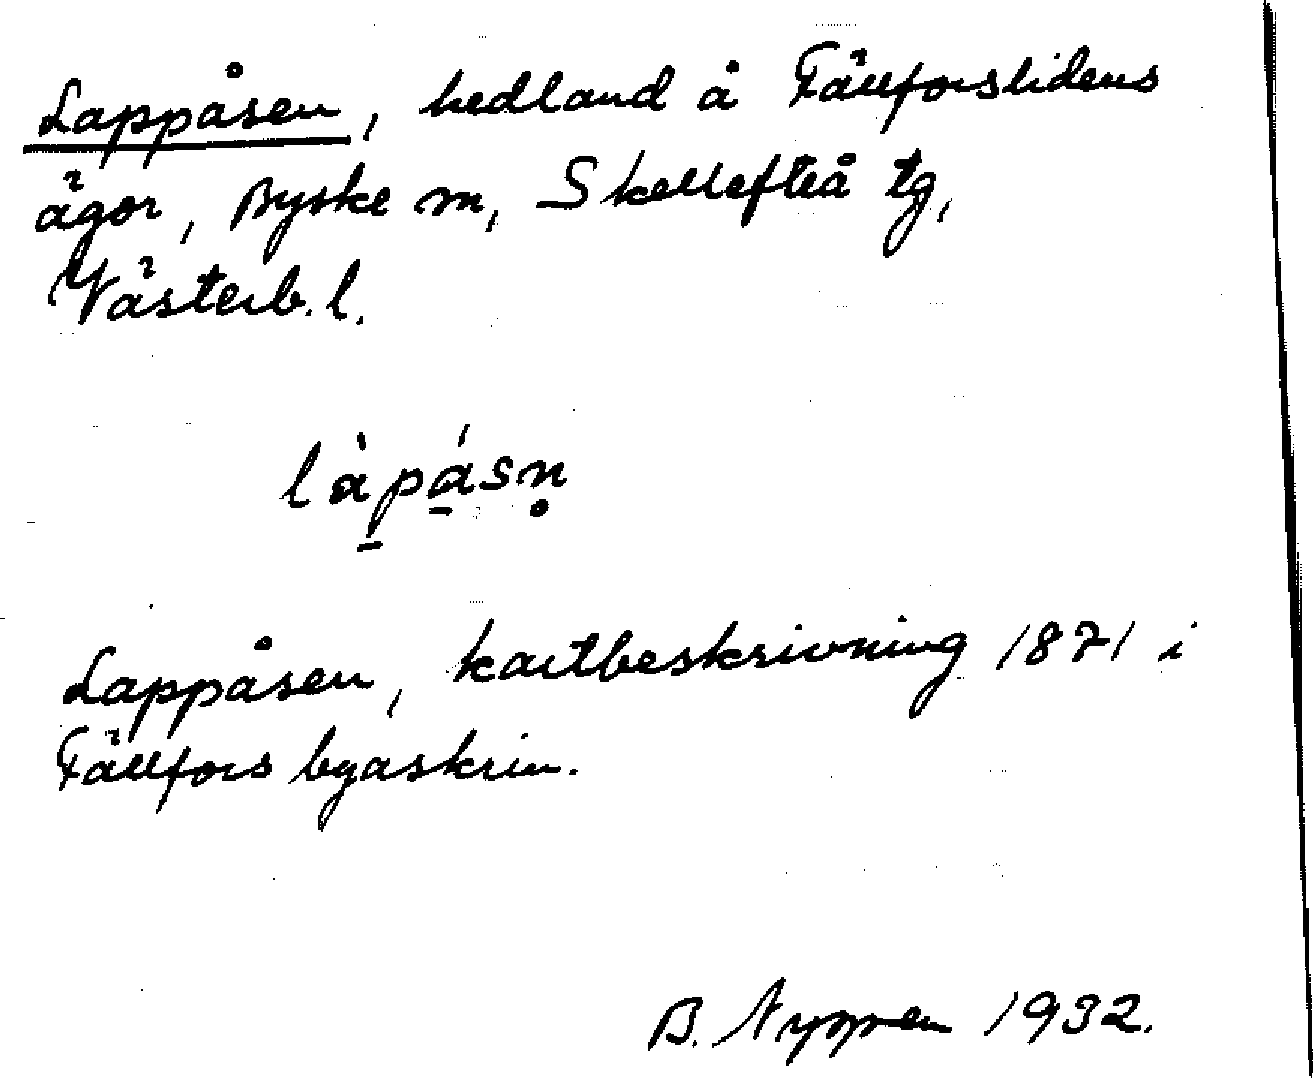 Lappåsen, hedland å Fällforslidens
ägor, Byske sn, Skellefteå tg,
Västerb. l.
làpásn̥
Lappåsen, kartbeskrivning 1871 i
Fällfors byaskrin.
B. Nyman 1932.